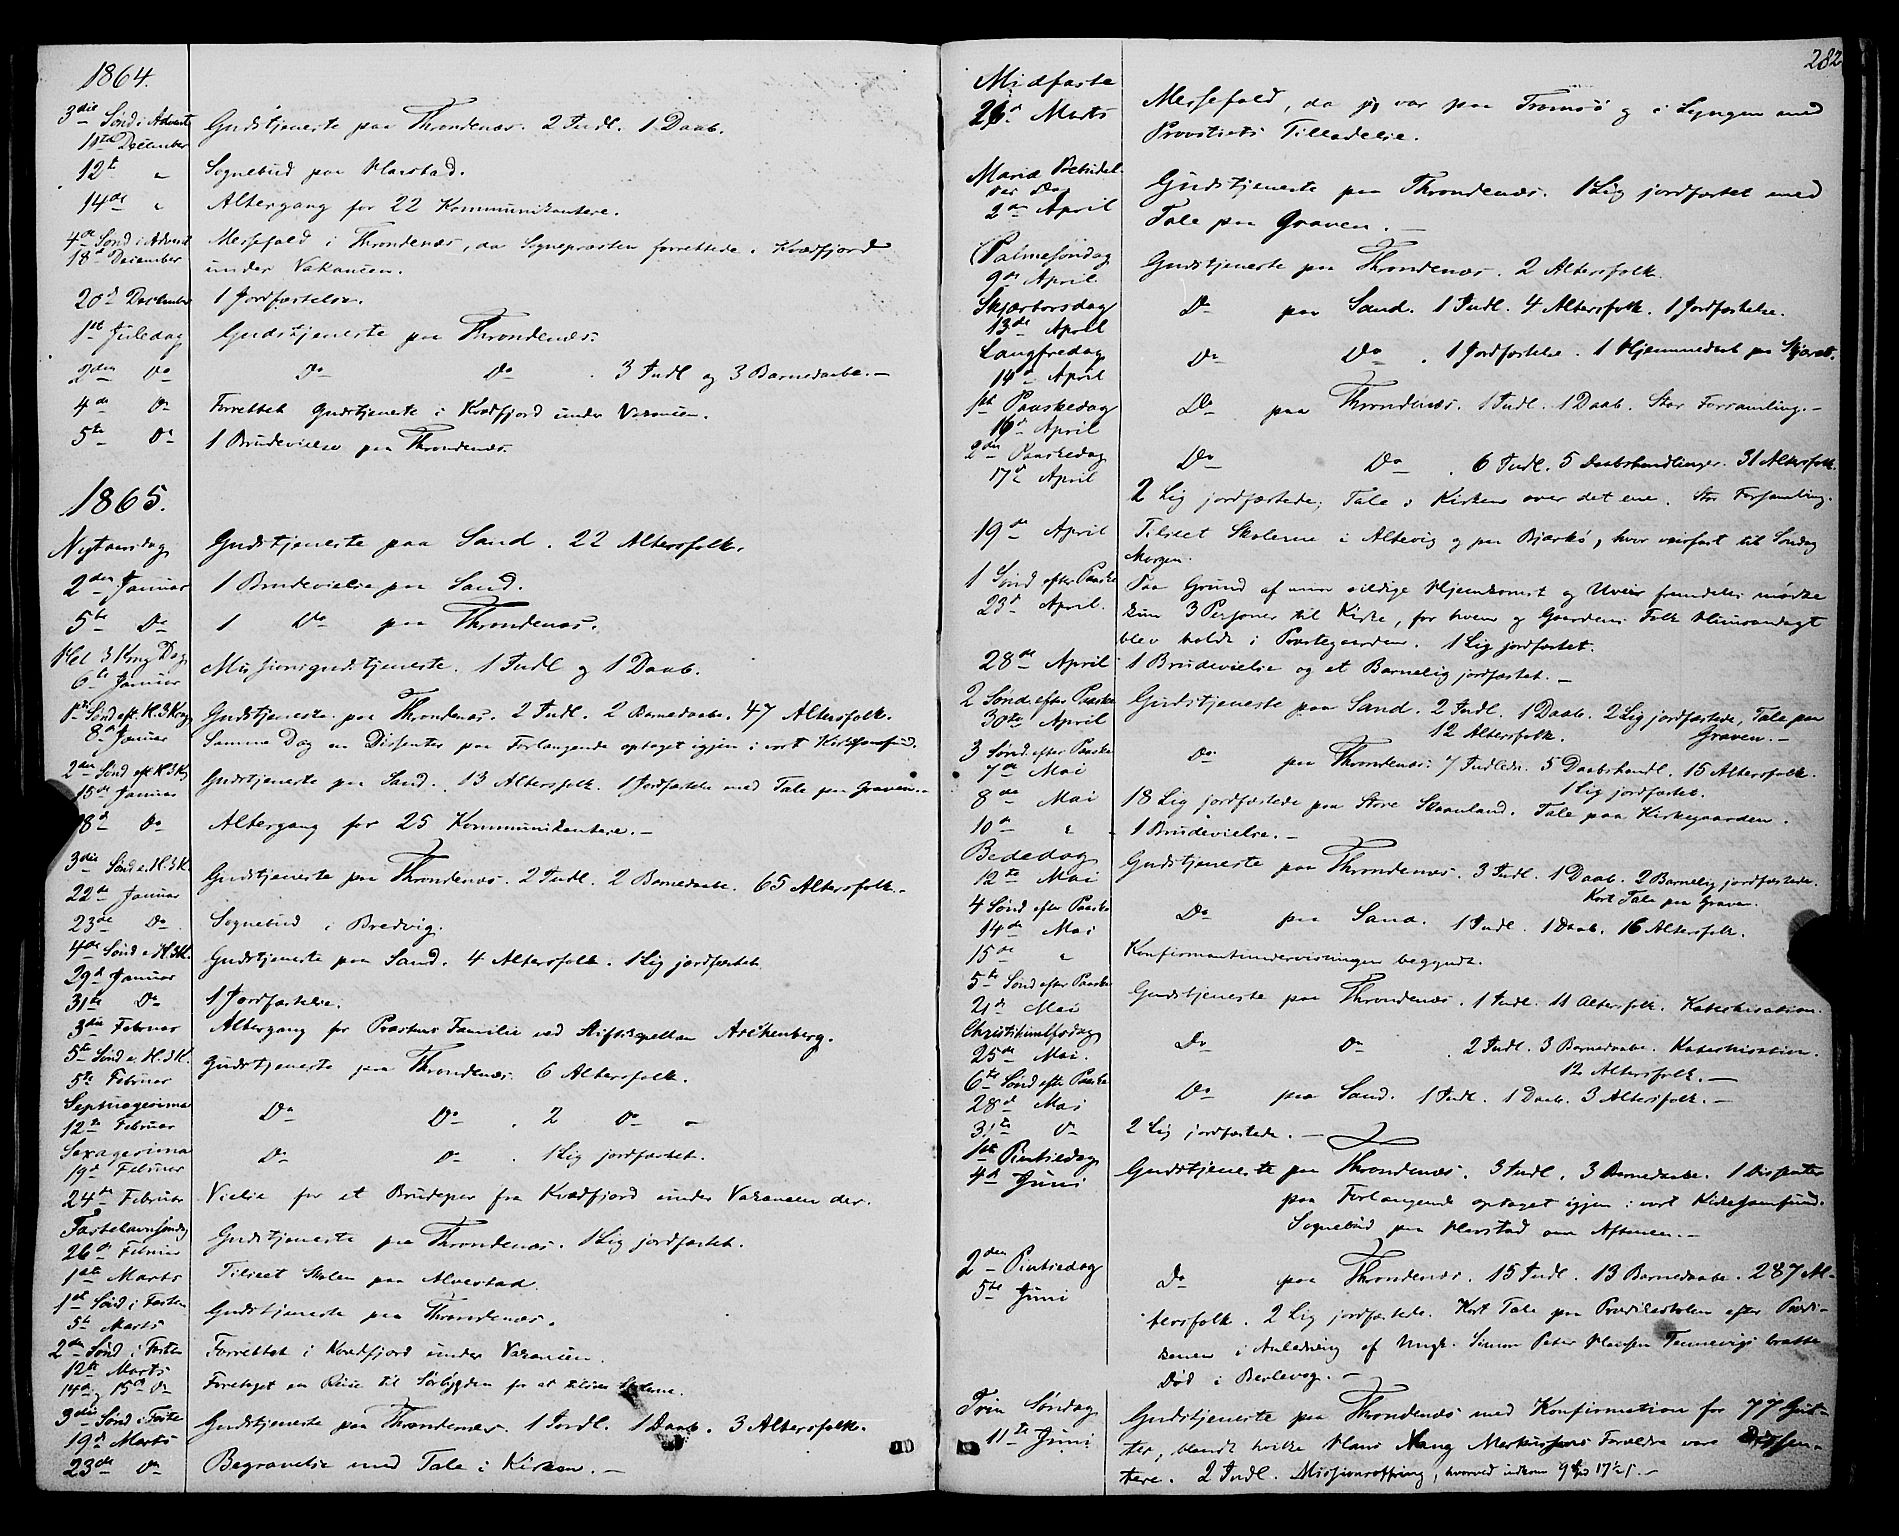 1864.
3die Sønd i Advent
11te December Gudstjeneste paa Throndenæs. 2 Indl. 1 Daab.
12t " Sognebud paa Harstad.
14de " Altergang for 22 Kommunikantere.
4de Sønd i Advent Messefald i Throndenæs, da Sognepræsten forrettede i Kvædfjord
18de December under Vakancen.
20de December 1 Jordfæstelse.
1ste Juledag Gudstjeneste paa Throndenæs.
2den Do Do Do . 3 Indl og 3 Barnedaabe. —
4de Do Forrettet Gudstjeneste i Kvædfjord under Vakancen.
5te Do 1 Brudevielse paa Throndenæs.
1865.
Nytaarsdag Gudstjeneste paa Sand. 22 Altersfolk.
2den Januar 1 Brudevielse paa Sand.
5te Do 1 Do paa Throndenæs.
Hel. 3 Kong. Dag
6te Januar Missionsgudstjeneste. 1 Indl og 1 Daab.
1ste Sønd eft. H. 3 Kong Gudstjeneste paa Throndenæs. 2 Indl. 2 Barnedaabe. 47 Altersfolk.
8de Januar Samme Dag en Dissenter paa Forlangende optaget igjen i vort Kirkesamfund.
2den Sønd eft H. 3 K Gudstjeneste paa Sand. 13 Altersfolk. 1 Jordfæstelse med Tale paa Graven. —
15de Januar
18d Do Altergang for 25 Kommunikantere. —
3die Sønd e. H. 3 K. Gudstjeneste paa Throndenæs. 2 Indl. 2 Barnedaabe. 65 Altersfolk. —
22de Januar
23de Do Sognebud i Bredvig.
4de Sønd e. H 3 K. Gudstjeneste paa Sand. 4 Altersfolk. 1 Lig jordfæstet.
29d Januar
31te Do 1 Jordfæstelse.
3die Februar Altergang for Præstens Familie ved Stiftskapellan Aschenberg.
5te Sønd e. H. 3 K. Gudstjeneste paa Throndenæs. 6 Altersfolk.
5te Februar
Septuagesima Do Do . 2 Do —
12te Februar
Sexagesima Do Do . 1 Lig jordfæstet.
19d Februar
24de Februar Vielse for et Brudepar fra Kvædfjord under Vakancen der.
Fastelavnsøndag Gudstjeneste paa Throndenæs. 1 Lig jordfæstet.
26de Februar
1ste Marts Tilseet Skolen paa Alvestad.
1ste Sønd i Fasten Gudstjeneste paa Throndenæs.
5te Marts
2den Sønd i Fasten Forrettet i Kvædfjord under Vakancen.
12te Marts
14de og 15de Do Foretaget en Reise til Sørbygden for at tilsee Skolerne.
3die Sønd i Faste Gudstjeneste paa Throndenæs. 1 Indl. 1 Daab. 3 Altersfolk.
19d Marts
23de Do Begravelse med Tale i Kirken. —
282
Midfaste
26d Marts Messefald, da jeg var paa Tromsø og i Lyngen med
Provstiets Tilladelse.
Mariæ Bebudel-
ses Dag Gudstjeneste paa Throndenæs. 1 Lig jordfæstet med
2den April Tale paa Graven. —
Palmesøndag Gudstjeneste paa Throndenæs. 2 Altersfolk.
9de April
Skjærtorsdag Do paa Sand. 1 Indl. 4 Altersfolk. 1 Jordfæstelse.
13de April
Langfredag Do Do . 1 Jordfæstelse. 1 Hjemmedaab paa
14de April
1ste Paaskedag Do paa Throndenæs. 1 Indl. 1 Daab. Stor Forsamling. —
16de April
2den Paaskedag Do Do . 6 Indl. 5 Daabshandlinger. 31 Altersfolk.
17de April 2 Lig jordfæstede; Tale i Kirken over det ene. Stor Forsamling.
19de April Tilseet Skolerne i Altevig og paa Bjarkø, hvor veirfast til Søndag
Morgen.
1 Sønd efter Paaske Paa Grund af min sildige Hjemkomst og Uveir fremdeles mødte
23d April. kun 3 Personer til Kirke, for hvem og Gaardens Folk Huusandagt
blev holdt i Præstegaarden. 1 Lig jordfæstet.
28de April 1 Brudevielse og et Barnelig jordfæstet. —
2 Sønd efter Paaske Gudstjeneste paa Sand. 2 Indl. 1 Daab. 2 Lig jordfæstede, Tale paa
30te April 12 Altersfolk. Graven. —
3 Sønd. efter Paaske Do paa Throndenæs. 7 Indlede. 5 Daabshandl. 15 Altersfolk.
7de Mai 1 Lig jordfæstet.
8de Mai 18 Lig jordfæstede paa Store Skaanland. Tale paa Kirkegaarden.
10de " 1 Brudevielse. —
Bededag Gudstjeneste paa Throndenæs. 3 Indl. 1 Daab. 2 Barnelig jordfæstede.
12te Mai Kort Tale paa Graven.
4 Sønd efter Paaske Do paa Sand. 1 Indl. 1 Daab. 16 Altersfolk.
14de Mai
15de " Konfirmantundervisningen begyndt.
5te Sønd efter Paaske Gudstjeneste paa Throndenæs. 1 Indl. 11 Altersfolk. Katechisation.
21d Mai
Christihimlfsdag Do Do . 2 Indl. 3 Barnedaabe. Katechisation.
25de Mai. 12 Altersfolk. —
6te Sønd efter Paaske Do paa Sand. 1 Indl. 1 Daab. 3 Altersfolk. —
28d Mai
31te Do 2 Lig jordfæstede. —
1ste Pintsedag Gudstjeneste paa Throndenæs. 3 Indl. 3 Barnedaabe. 1 Dissenter
4d Juni paa Forlangende optaget igjen i vort Kirkesamfund.
Sognebud paa Harstad om Aftenen. —
2den Pintsedag Do paa Throndenæs. 15 Indl. 13 Barnedaabe. 287 Al-
5te Juni tersfolk. 2 Lig jordfæstede. Kort Tale paa Prædikestolen efter Prædi-
kenen i Anledning af Ungk. Simon Peter Hansen Tennevigs bratte
Død i Berlevog. —
Trin Søndag Gudstjeneste paa Throndenæs med Konfirmation for 77 Gut-
11te Juni ter, blandt hvilke Hans Maug Markussens Forældre vare Dissen-
tere. 2 Indl. Missionsoffring, hvorved indkom 9 Spd 17½ s. —